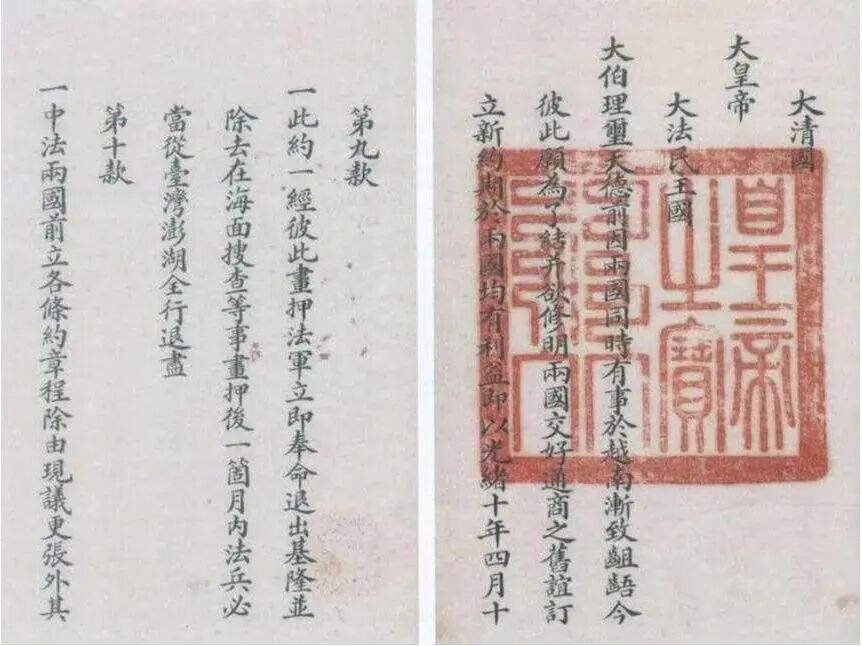 大清國
大皇帝
大法民主國
大伯理璽天德前因兩國同時有事於越南漸致齟齬今
彼此願為了結并欲修明兩國交好通商之舊誼訂
立新約期於兩國均有利益即以光緒十年四月十
皇帝
之寶
第九款
一此約一經彼此畫押法軍立即奉命退出基隆並
除去在海面搜查等事畫押後一箇月內法兵必
當從臺灣澎湖全行退盡
第十款
一中法兩國前立各條約章程除由現議更張外其